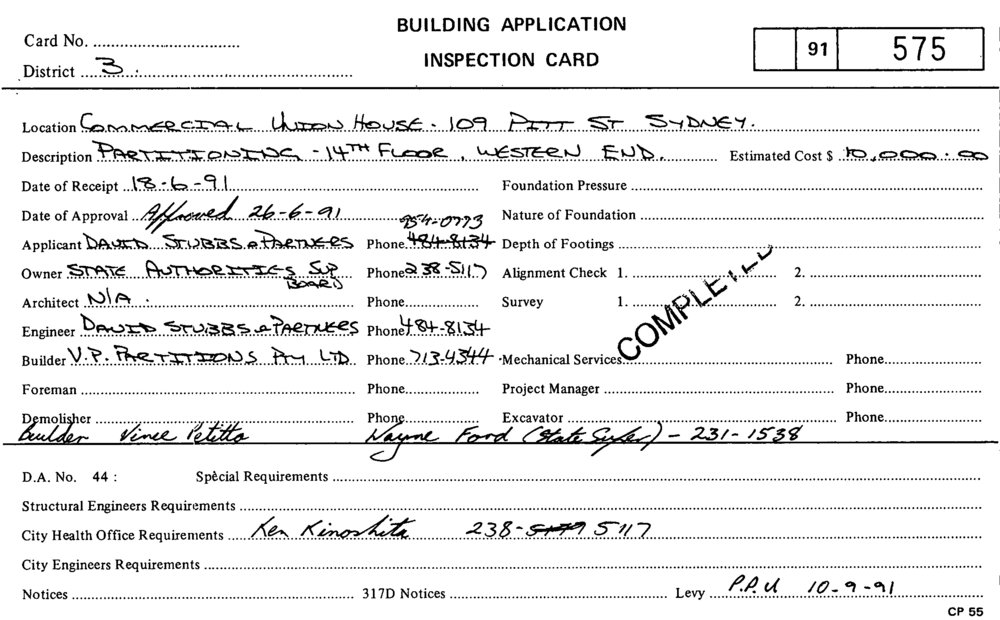 BUILDING APPLICATION
INSPECTION CARD
Card No.
District 3
91 575
Location COMMERCIAL UNION HOUSE - 109 PITT ST SYDNEY.
Description PARTITIONING - 14TH FLOOR, WESTERN END. Estimated Cost $ 10,000.00
Date of Receipt 18-6-91 Foundation Pressure
Date of Approval Approved 26-6-91 Nature of Foundation
954-0773
Applicant DAVID STUBBS & PARTNERS Phone 484-8134 Depth of Footings
Owner STATE AUTHORITIES SUP BOARD Phone 238-5117 Alignment Check 1. 2.
Architect N/A Phone Survey 1. 2.
COMPLETED
Engineer DAVID STUBBS & PARTNERS Phone 484-8134
Builder V.P. PARTITIONS PTY LTD Phone 713-4344 Mechanical Services Phone
Foreman Phone Project Manager Phone
Demolisher Phone Excavator Phone
Builder Vince Petitto Wayne Ford (State Super) - 231-1538
D.A. No. 44 : Special Requirements
Structural Engineers Requirements
City Health Office Requirements Ken Kinoshita 238- 5117
City Engineers Requirements
Notices 317D Notices Levy P.P.U 10-9-91
CP 55